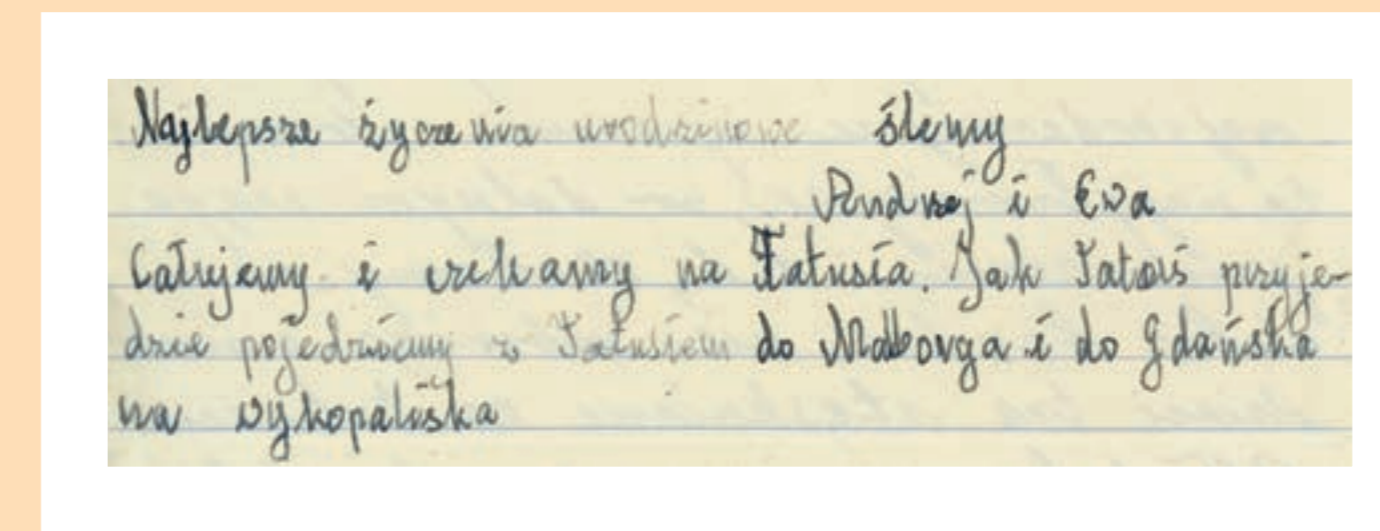 Najlepsze życzenia urodzinowe ślemy
Andrzej i Ewa
Całujemy i czekamy na Tatusia. Jak Tatuś przyje-
dzie pojedziemy z Tatusiem do Malborga i do Gdańska
na wykopaliska